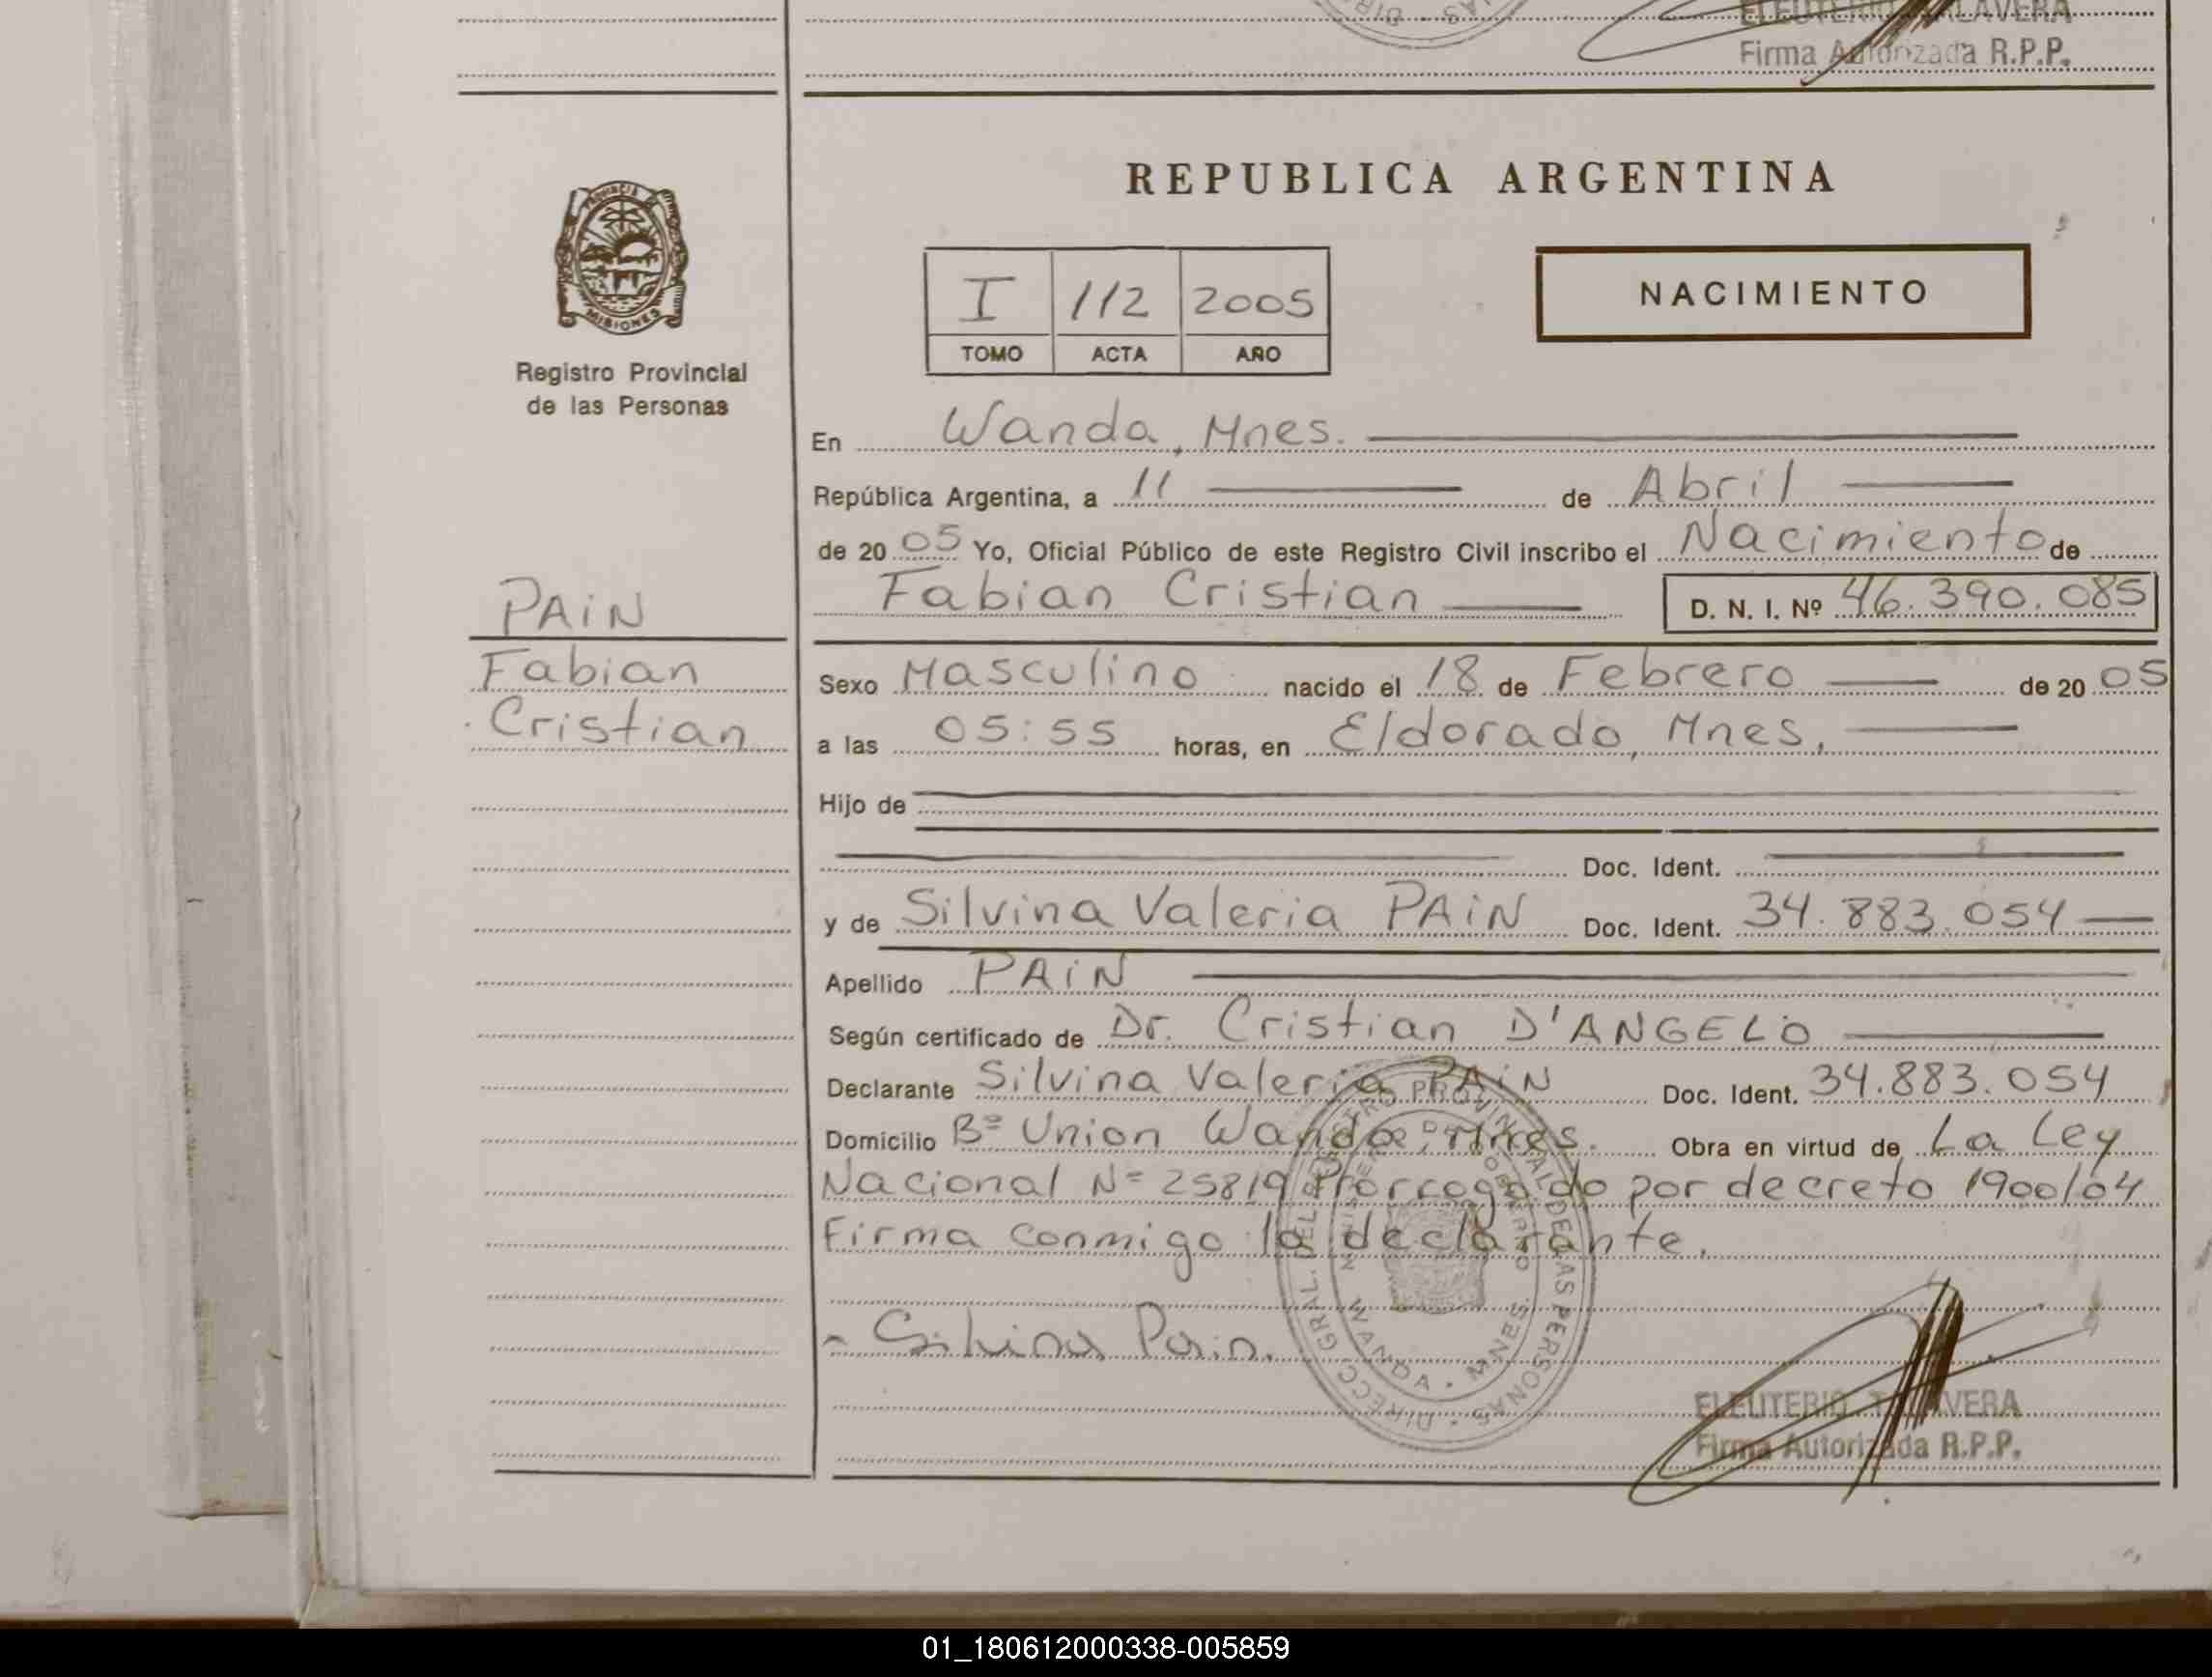 ELEUTERIO TALAVERA
Firma Autorizada R.P.P.
PROVINCIA DE
MISIONES
Registro Provincial
de las Personas
PAiN
Fabian
Cristian
REPUBLICA ARGENTINA
I 112 2005
TOMO ACTA AÑO
NACIMIENTO
En Wanda, Mnes.
República Argentina, a 11 de Abril
de 20 05 Yo, Oficial Público de este Registro Civil inscribo el Nacimiento de
Fabian Cristian D. N. I. Nº 46.390.085
Sexo Masculino nacido el 18 de Febrero de 20 05
a las 05:55 horas, en Eldorado, Mnes,
Hijo de
Doc. Ident.
y de Silvina Valeria PAiN Doc. Ident. 34.883.054
Apellido PAiN
Según certificado de Dr. Cristian D'ANGELO
Declarante Silvina Valeria PAiN Doc. Ident. 34.883.054
Domicilio Bº Union Wanda, Mnes. Obra en virtud de La Ley
Nacional Nº 25819 Prorrogado por decreto 1900/04
Firma conmigo la declarante.
Silvina Pain.
DIRECC. GRAL. DEL REGISTRO PROVINCIAL DE LAS PERSONAS
MINISTERIO DE GOBIERNO
WANDA - MNES
ELEUTERIO TALAVERA
Firma Autorizada R.P.P.
01_180612000338-005859